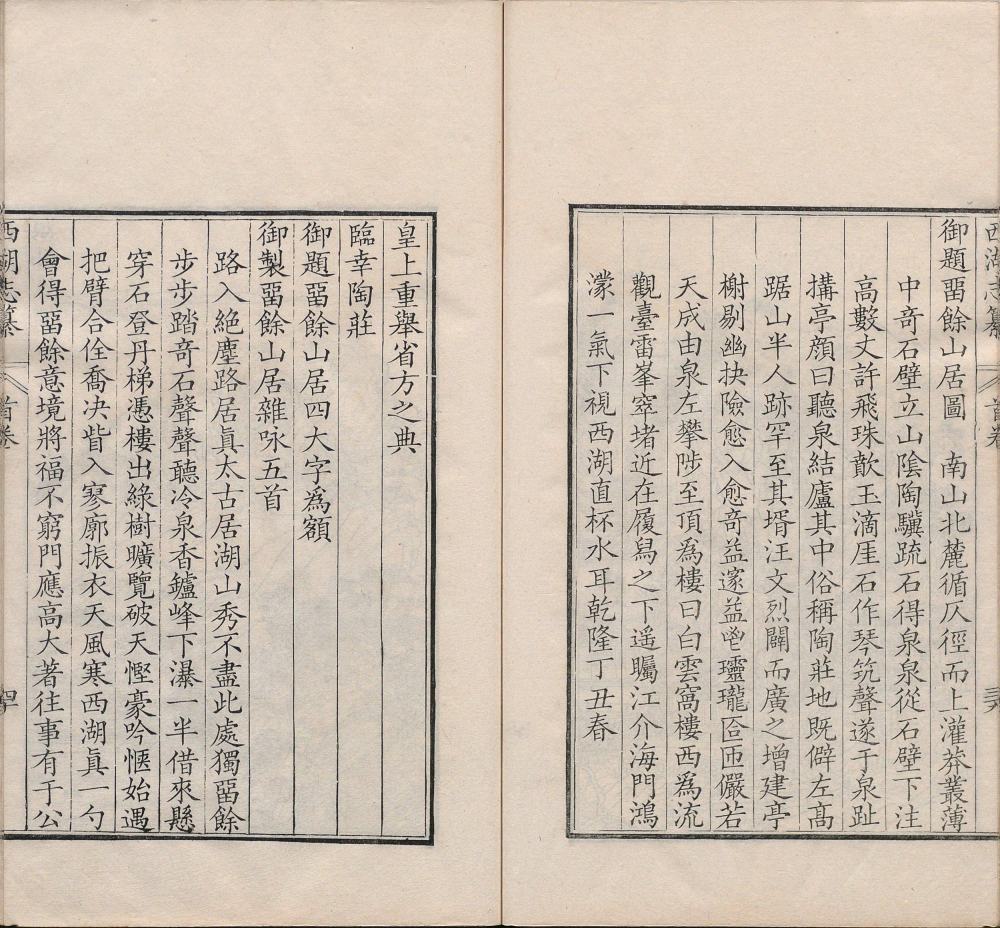 西湖志纂 首卷
御題畱餘山居圖 南山北麓循仄徑而上灌莽叢薄
中奇石壁立山陰陶驥疏石得泉泉從石壁下注
高數丈許飛珠歕玉滴厓石作琴筑聲遂于泉趾
搆亭顏曰聽泉結廬其中俗稱陶莊地既僻左髙
踞山半人跡罕至其壻汪文烈闢而廣之增建亭
榭剔幽抉險愈入愈奇益邃益窅瓏瓏匼匝儼若
天成由泉左攀陟至頂爲樓曰白雲窩樓西爲流
觀臺雷峯窣堵近在履舄之下遥矚江介海門鴻
濛一氣下視西湖直杯水耳乾隆丁丑春
皇上重舉省方之典
臨幸陶莊
御題畱餘山居四大字爲額
御製畱餘山居雜咏五首
路入絶塵路居眞太古居湖山秀不盡此處獨畱餘
步步踏奇石聲聲聽冷泉香鑪峰下瀑一半借來懸
穿石登丹梯憑樓出綠樹曠覽破天慳豪吟愜始遇
把臂合佺喬决眥入寥廓振衣天風寒西湖眞一勺
會得畱餘意境將福不窮門應高大著往事有于公
西湖志纂 首卷